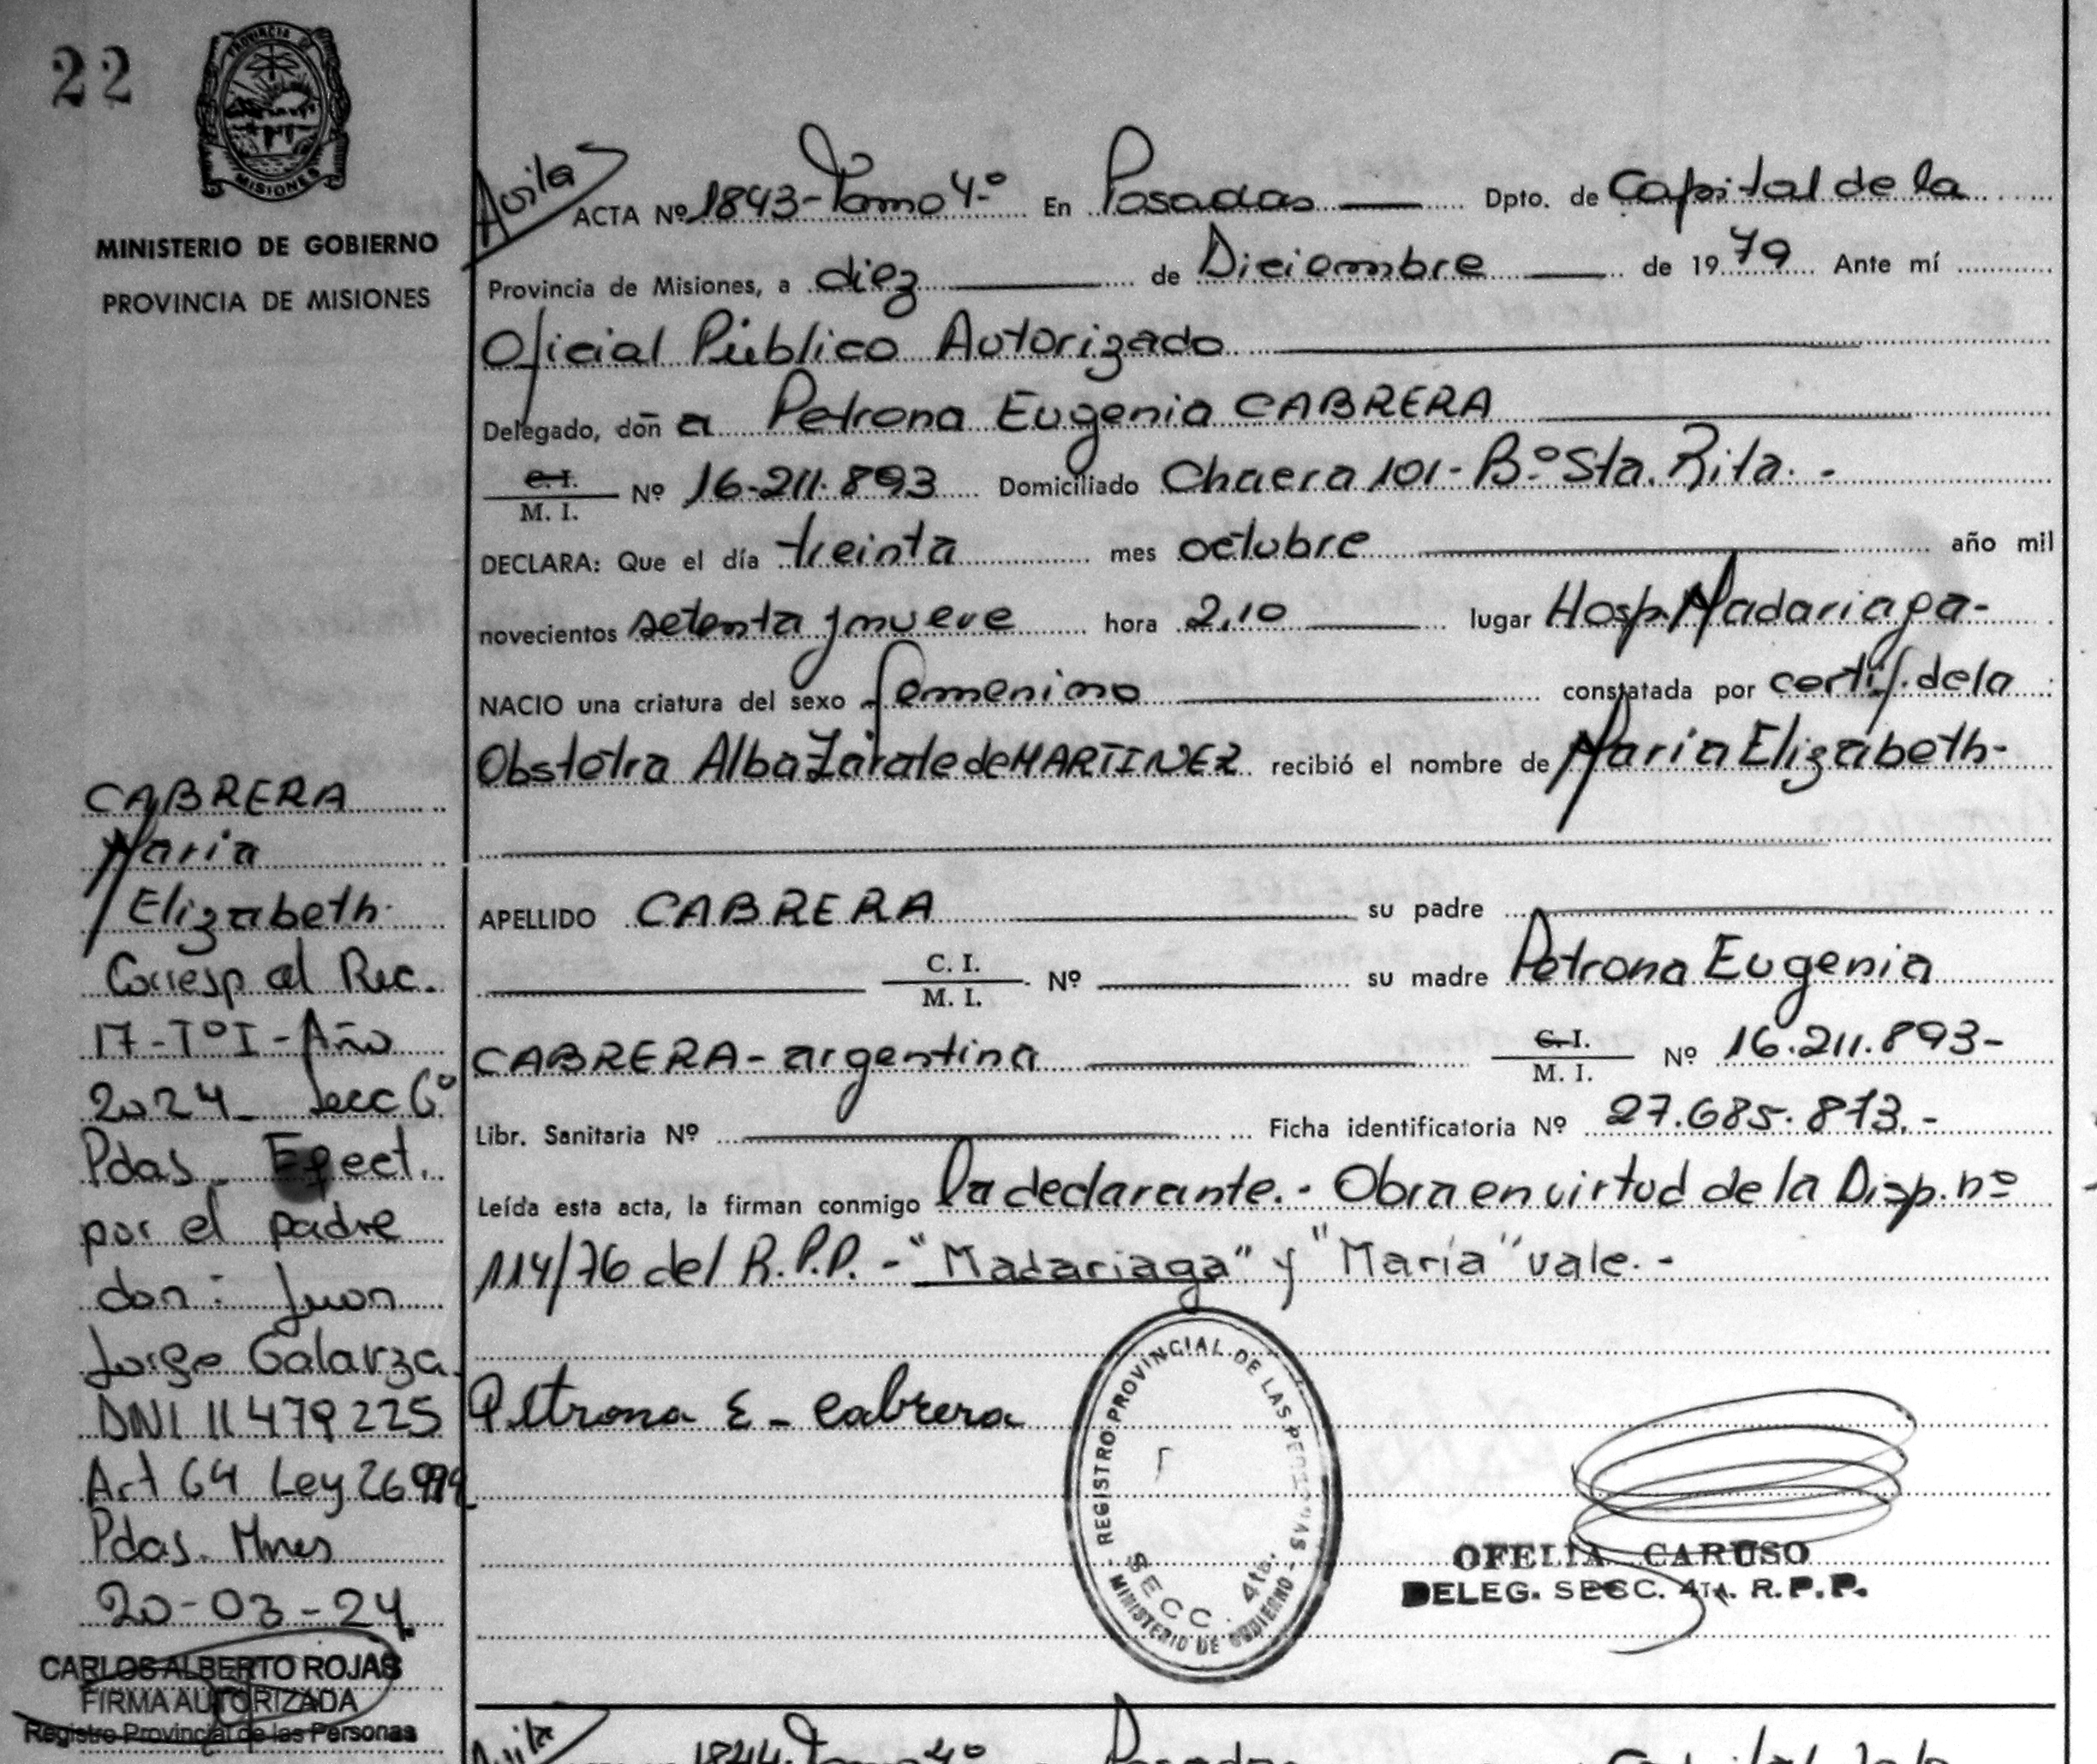 22
PROVINCIA DE
MISIONES
MINISTERIO DE GOBIERNO
PROVINCIA DE MISIONES
Avila
ACTA Nº 1843-Tomo 4º En Posadas Dpto. de Capital de la
Provincia de Misiones, a diez de Diciembre de 1979 Ante mí
Oficial Público Autorizado
Delegado, doña Petrona Eugenia CABRERA
C. I. / M. I. Nº 16.211.893 Domiciliado Chacra 101- Bº Sta. Rita.-
DECLARA: Que el día treinta mes octubre año mil
novecientos setenta y nueve hora 2,10 lugar Hosp. Madariaga-
NACIO una criatura del sexo femenino constatada por certif. de la
Obstétra Alba Zárate de MARTINEZ recibió el nombre de María Elizabeth-
APELLIDO CABRERA su padre
C. I. / M. I. Nº su madre Petrona Eugenia
CABRERA- argentina C. I. / M. I. Nº 16.211.893-
Libr. Sanitaria Nº Ficha identificatoria Nº 27.685.813.-
Leída esta acta, la firman conmigo la declarante.- Obra en virtud de la Disp. nº
114/76 del R.P.P. - "Madariaga" y "María" vale.-
Petrona E - Cabrera
REGISTRO PROVINCIAL DE LAS PERSONAS
SECC. 4ta.
MINISTERIO DE GOBIERNO
OFELIA CARUSO
DELEG. SECC. 4TA. R.P.P.
CABRERA
María
Elizabeth-
Corresp al Rec.
17-TºI-Año
2024 Secc 6º
Pdas. Efect.
por el padre
don: Juan
Jorge Galarza
DNI 11 479 225
Art 64 Ley 26994
Pdas. Mnes
20-03-24
CARLOS ALBERTO ROJAS
FIRMA AUTORIZADA
Registro Provincial de las Personas
Avila
1844-Tomo 4º Posadas Capital de la